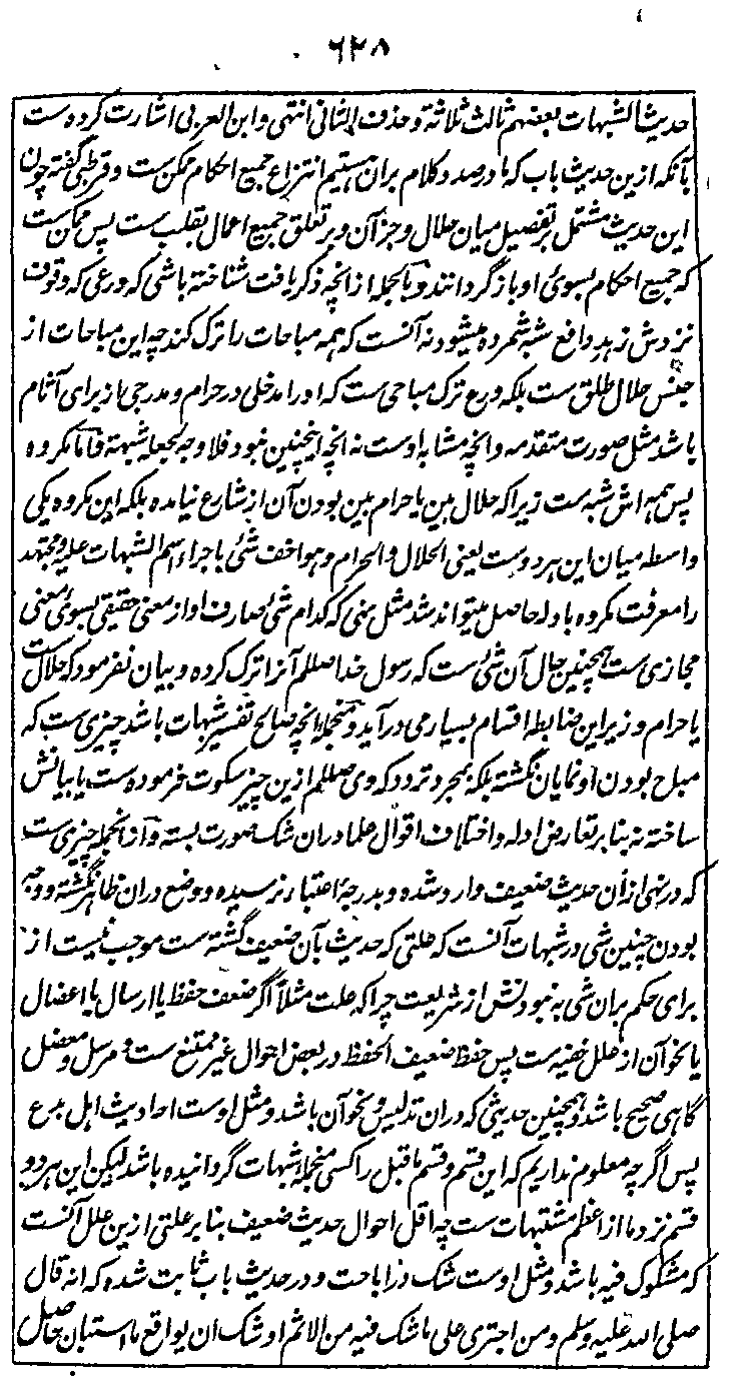 ۶۲۸
حدیث الشبهات بعضهم ثالث ثلاثة وحذف الثانی انتهی و ابن العربی اشارت کرده ست
بآنکه ازین حدیث باب که در صدد کلام بران هستیم انتزاع جمیع احکام ممکن ست و قرطبی گفته چون
این حدیث مشتمل بر تفصیل میان حلال و جز آن و بر تعلق جمیع اعمال بقلب ست پس ممکن ست
که جمیع احکام بسوی او باز گردانند و بالجمله از انچه ذکر یافت شناخته باشی که ورعی که وقوف
نزدش زهد دافع شبه شمرده میشود نه آنست که همه مباحات را ترک کند چه این مباحات از
جنس حلال طلق ست بلکه ورع ترک مباحی ست که او را مدخلی در حرام و مدرجی از برای آثام
باشد مثل صورت متقدمه و انچه مشابه اوست نه انچه اینچنین نبود فلا وجه لجعله شبهة فاما مکروه
پس همه اش شبه ست زیرا که حلال بین یا حرام بین بودن آن از شارع نیامده بلکه این مکروه یکی
واسطه میان این هر دوست یعنی الحلال والحرام وهو اخف شئ باجراء اسم الشبهات علیه و مجتهد
را معرفت مکروه بادله حاصل میتواند شد مثل نهی که کدام شئ صارف او از معنی حقیقی بسوی معنی
مجازی ست همچنین حال آن شئ ست که رسول خدا صللم آنرا ترک کرده و بیان نفرمود که حلال ست
یا حرام و زیر این ضابطه اقسام بسیار می در آید و منجمله انچه صالح تفسیر شبهات باشد چیزی ست که
مباح بودن او نمایان نگشته بلکه بمجرد تردد که وی صللم ازین چیز سکوت فرموده ست یا بیانش
ساخته نه بنابر تعارض ادله و اختلاف اقوال علما دران شک صورت بسته و از انجمله چیزی ست
که در نهی از آن حدیث ضعیف وارد شده و بدرجه اعتبار نرسیده و وضع دران ظاهر نگشته و وجه
بودن چنین شی در شبهات آنست که علتی که حدیث بآن ضعیف گشته ست موجب نیست از
برای حکم بران شی به نبودنش از شریعت چرا که علت مثلاً اگر ضعف حفظ یا ارسال یا اعضال
یا نحو آن از علل خفیه ست پس حفظ ضعیف الحفظ در بعض احوال غیر ممتنع ست و مرسل و معضل
گاهی صحیح باشد و همچنین حدیثی که دران تدلیس و نحو آن باشد و مثل اوست احادیث اهل بدع
پس اگرچه معلوم نداریم که این قسم و قسم ماقبل را کسی منجمله شبهات گردانیده باشد لیکن این هر دو
قسم نزد ما از اعظم مشتبهات ست چه اقل احوال حدیث ضعیف بنابر علتی ازین علل آنست
که مشکوک فیه باشد و مثل اوست شک در اباحت و در حدیث باب ثابت شده که انه قال
صلی الله علیه وسلم ومن اجتری علی ماشک فیه من الاثم اوشک ان یواقع ما استبان حاصل